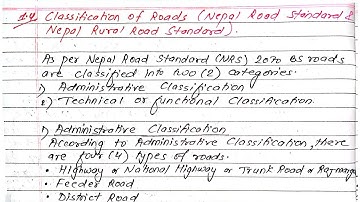 1.4 Classification of Roads (Nepal Road Standard &
Nepal Rural Road Standard).
As per Nepal Road Standard (NRS) 2070 BS roads
are classified into two (2) categories.
1) Administrative Classification
2) Technical or functional Classification.
1) Administrative Classification
According to Administrative Classification, there
are four (4) types of roads.
• Highway or National Highway or Trunk Road or Rajmarga
• Feeder Road
• District Road